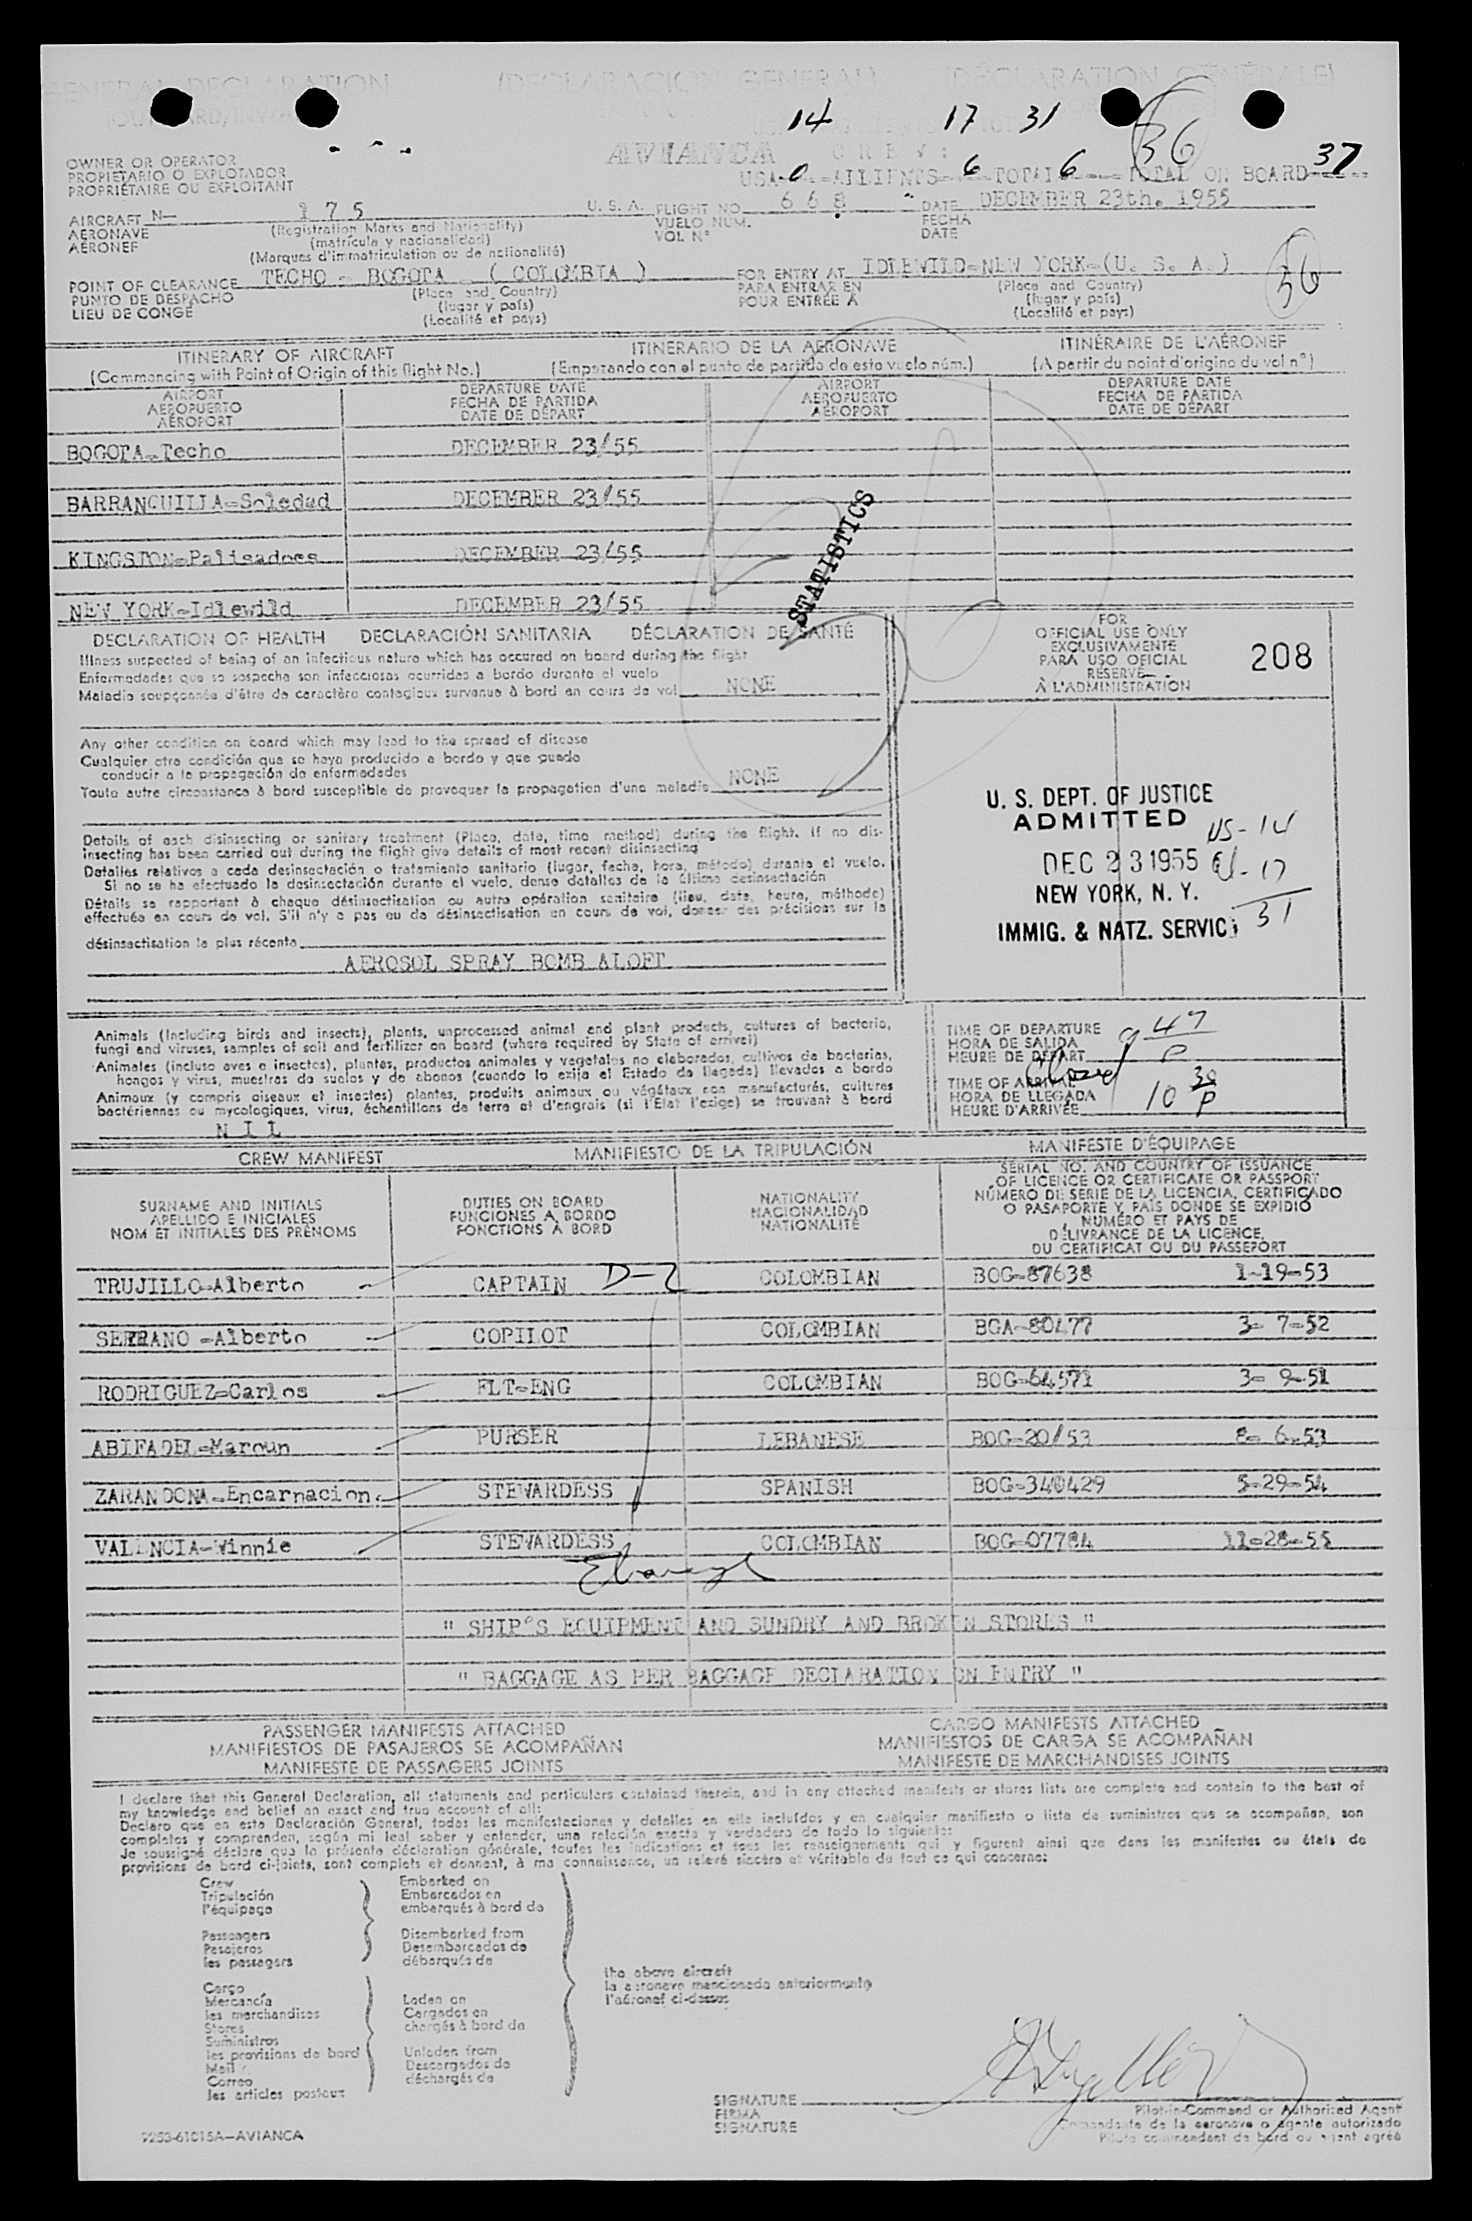 GENERAL DECLARATION (DECLARACION GENERAL) (DÉCLARATION GÉNÉRALE)
14 17 31 36
OWNER OR OPERATOR AVIANCA CREW:
PROPIETARIO O EXPLOTADOR
PROPRIÉTAIRE OU EXPLOITANT
USA-0 6-TOTAL 6 TOTAL ON BOARD 37
AIRCRAFT N- 175 U. S. A. FLIGHT NO. 668 DATE DECEMBER 23th. 1955
AERONAVE (Registration Marks and Nationality) VUELO NUM. FECHA
AÉRONEF (matrícula y nacionalidad) VOL N° DATE
(Marques d'immatriculation ou de nationalité)
POINT OF CLEARANCE TECHO - BOGOTA ( COLOMBIA ) FOR ENTRY AT IDLEWILD-NEW YORK-(U. S. A.) 36
PUNTO DE DESPACHO (Place and Country) PARA ENTRAR EN (Place and Country)
LIEU DE CONGÉ (lugar y país) POUR ENTRÉE À (lugar y país)
(Localité et pays) (Localité et pays)
ITINERARY OF AIRCRAFT ITINERARIO DE LA AERONAVE ITINÉRAIRE DE L'AÉRONEF
(Commencing with Point of Origin of this flight No.) (Empezando con el punto de partida de este vuelo núm.) (A partir du point d'origine du vol n°)
AIRPORT DEPARTURE DATE AIRPORT DEPARTURE DATE
AEROPUERTO FECHA DE PARTIDA AEROPUERTO FECHA DE PARTIDA
AÉROPORT DATE DE DÉPART AÉROPORT DATE DE DÉPART
BOGOTA-Techo DECEMBER 23/55
BARRANQUILLA-Soledad DECEMBER 23/55
KINGSTON-Palisadoes DECEMBER 23/55
NEW YORK-Idlewild DECEMBER 23/55
STATISTICS
DECLARATION OF HEALTH DECLARACIÓN SANITARIA DÉCLARATION DE SANTÉ
Illness suspected of being of an infectious nature which has occured on board during the flight
Enfermedades que se sospecha son infecciosas ocurridas a bordo durante el vuelo
Maladie soupçonnée d'être de caractère contagieux survenue à bord en cours de vol NONE
FOR
OFFICIAL USE ONLY
EXCLUSIVAMENTE
PARA USO OFICIAL
RÉSERVÉ
À L'ADMINISTRATION
208
Any other condition on board which may lead to the spread of disease
Cualquier otra condición que se haya producido a bordo y que puede
conducir a la propagación de enfermedades
Toute autre circonstance à bord susceptible de provoquer la propagation d'une maladie NONE
Details of each disinsecting or sanitary treatment (Place, date, time method) during the flight. If no dis-
insecting has been carried out during the flight give details of most recent disinsecting
Detalles relativos a cada desinsectación o tratamiento sanitario (lugar, fecha, hora, método) durante el vuelo.
Si no se ha efectuado la desinsectación durante el vuelo, dense detalles de la última desinsectación
Détails se rapportant à chaque désinsectisation ou autre opération sanitaire (lieu, date, heure, méthode)
effectuée en cours de vol. S'il n'y a pas eu de désinsectisation en cours de vol, donner des précisions sur la
désinsectisation la plus récente
AEROSOL SPRAY BOMB ALOFT
U. S. DEPT. OF JUSTICE
ADMITTED US-14
DEC 23 1955 17
NEW YORK, N. Y. 31
IMMIG. & NATZ. SERVIC
Animals (Including birds and insects), plants, unprocessed animal and plant products, cultures of bacteria,
fungi and viruses, samples of soil and fertilizer on board (where required by State of arrivel)
Animales (incluso aves e insectos), plantas, productos animales y vegetales no elaborados, cultivos de bacterias,
hongos y virus, muestras de suelos y de abonos (cuando lo exija el Estado de llegada) llevados a bordo
Animaux (y compris oiseaux et insectes) plantes, produits animaux ou végétaux non manufacturés, cultures
bactériennes ou mycologiques, virus, échentillons de terre et d'engrais (si l'État l'exige) se trouvant à bord
N I L
TIME OF DEPARTURE
HORA DE SALIDA
HEURE DE DÉPART 9 47 P
TIME OF ARRIVAL
HORA DE LLEGADA
HEURE D'ARRIVÉE 10 30 P
CREW MANIFEST MANIFIESTO DE LA TRIPULACIÓN MANIFESTE D'ÉQUIPAGE
SURNAME AND INITIALS
APELLIDO E INICIALES
NOM ET INITIALES DES PRÉNOMS
DUTIES ON BOARD
FUNCIONES A BORDO
FONCTIONS À BORD
NATIONALITY
NACIONALIDAD
NATIONALITÉ
SERIAL NO. AND COUNTRY OF ISSUANCE
OF LICENCE OR CERTIFICATE OR PASSPORT
NÚMERO DE SERIE DE LA LICENCIA, CERTIFICADO
O PASAPORTE Y PAÍS DONDE SE EXPIDIÓ
NUMÉRO ET PAYS DE
DÉLIVRANCE DE LA LICENCE,
DU CERTIFICAT OU DU PASSEPORT
TRUJILLO-Alberto CAPTAIN D-2 COLOMBIAN BOG-87638 1-19-53
SERRANO -Alberto COPILOT COLOMBIAN BGA-80477 3- 7-52
RODRIGUEZ-Carlos FLT-ENG COLOMBIAN BOG-64571 3- 9-51
ABIFADEL-Maroun PURSER LEBANESE BOG-20/53 8- 6-53
ZARANDONA-Encarnacion. STEWARDESS SPANISH BOG-340429 5-29-54
VALENCIA-Winnie STEWARDESS COLOMBIAN BOG-07784 11-28-55
" SHIP'S EQUIPMENT AND SUNDRY AND BROKEN STORES "
" BAGGAGE AS PER BAGGAGE DECLARATION ON ENTRY "
PASSENGER MANIFESTS ATTACHED CARGO MANIFESTS ATTACHED
MANIFIESTOS DE PASAJEROS SE ACOMPAÑAN MANIFIESTOS DE CARGA SE ACOMPAÑAN
MANIFESTE DE PASSAGERS JOINTS MANIFESTE DE MARCHANDISES JOINTS
I declare that this General Declaration, all statements and perticulers contained therein, and in any attached manifests or stores lists are complete and contain to the best of
my knowledge and belief an exact and true account of all:
Declaro que en esta Declaración General, todas las manifestaciones y detalles en ella incluídos y en cualquier manifiesto o lista de suministros que se acompañan, son
completos y comprenden, según mi leal saber y entender, una relación exacta y verdadera de todo lo siguiente:
Je soussigné déclare que la présente déclaration générale, toutes les indications et tous les renseignements qui y figurent ainsi que dans les manifestes ou états de
provisions de bord ci-joints, sont complets et donnent, à ma connaissance, un relevé sincère et véritable de tout ce qui concerne:
Crew Embarked on
Tripulación Embarcados en
l'équipage embarqués à bord de
Passengers Disembarked from
Pasajeros Desembarcados de
les passagers débarqués de
the above aircraft
la aeronave mencionada anteriormente
l'aéronef ci-dessus
Cargo
Mercancía Laden on
les marchandises Cargados en
Stores chargés à bord de
Suministros
les provisions de bord Unladen from
Mail Descargados de
Correo déchargés de
les articles postaux
SIGNATURE Pilot-in-Command or Authorized Agent
FIRMA Comandante de la aeronave o agente autorizado
SIGNATURE Pilote commandant de bord ou agent agréé
9253-61015A—AVIANCA